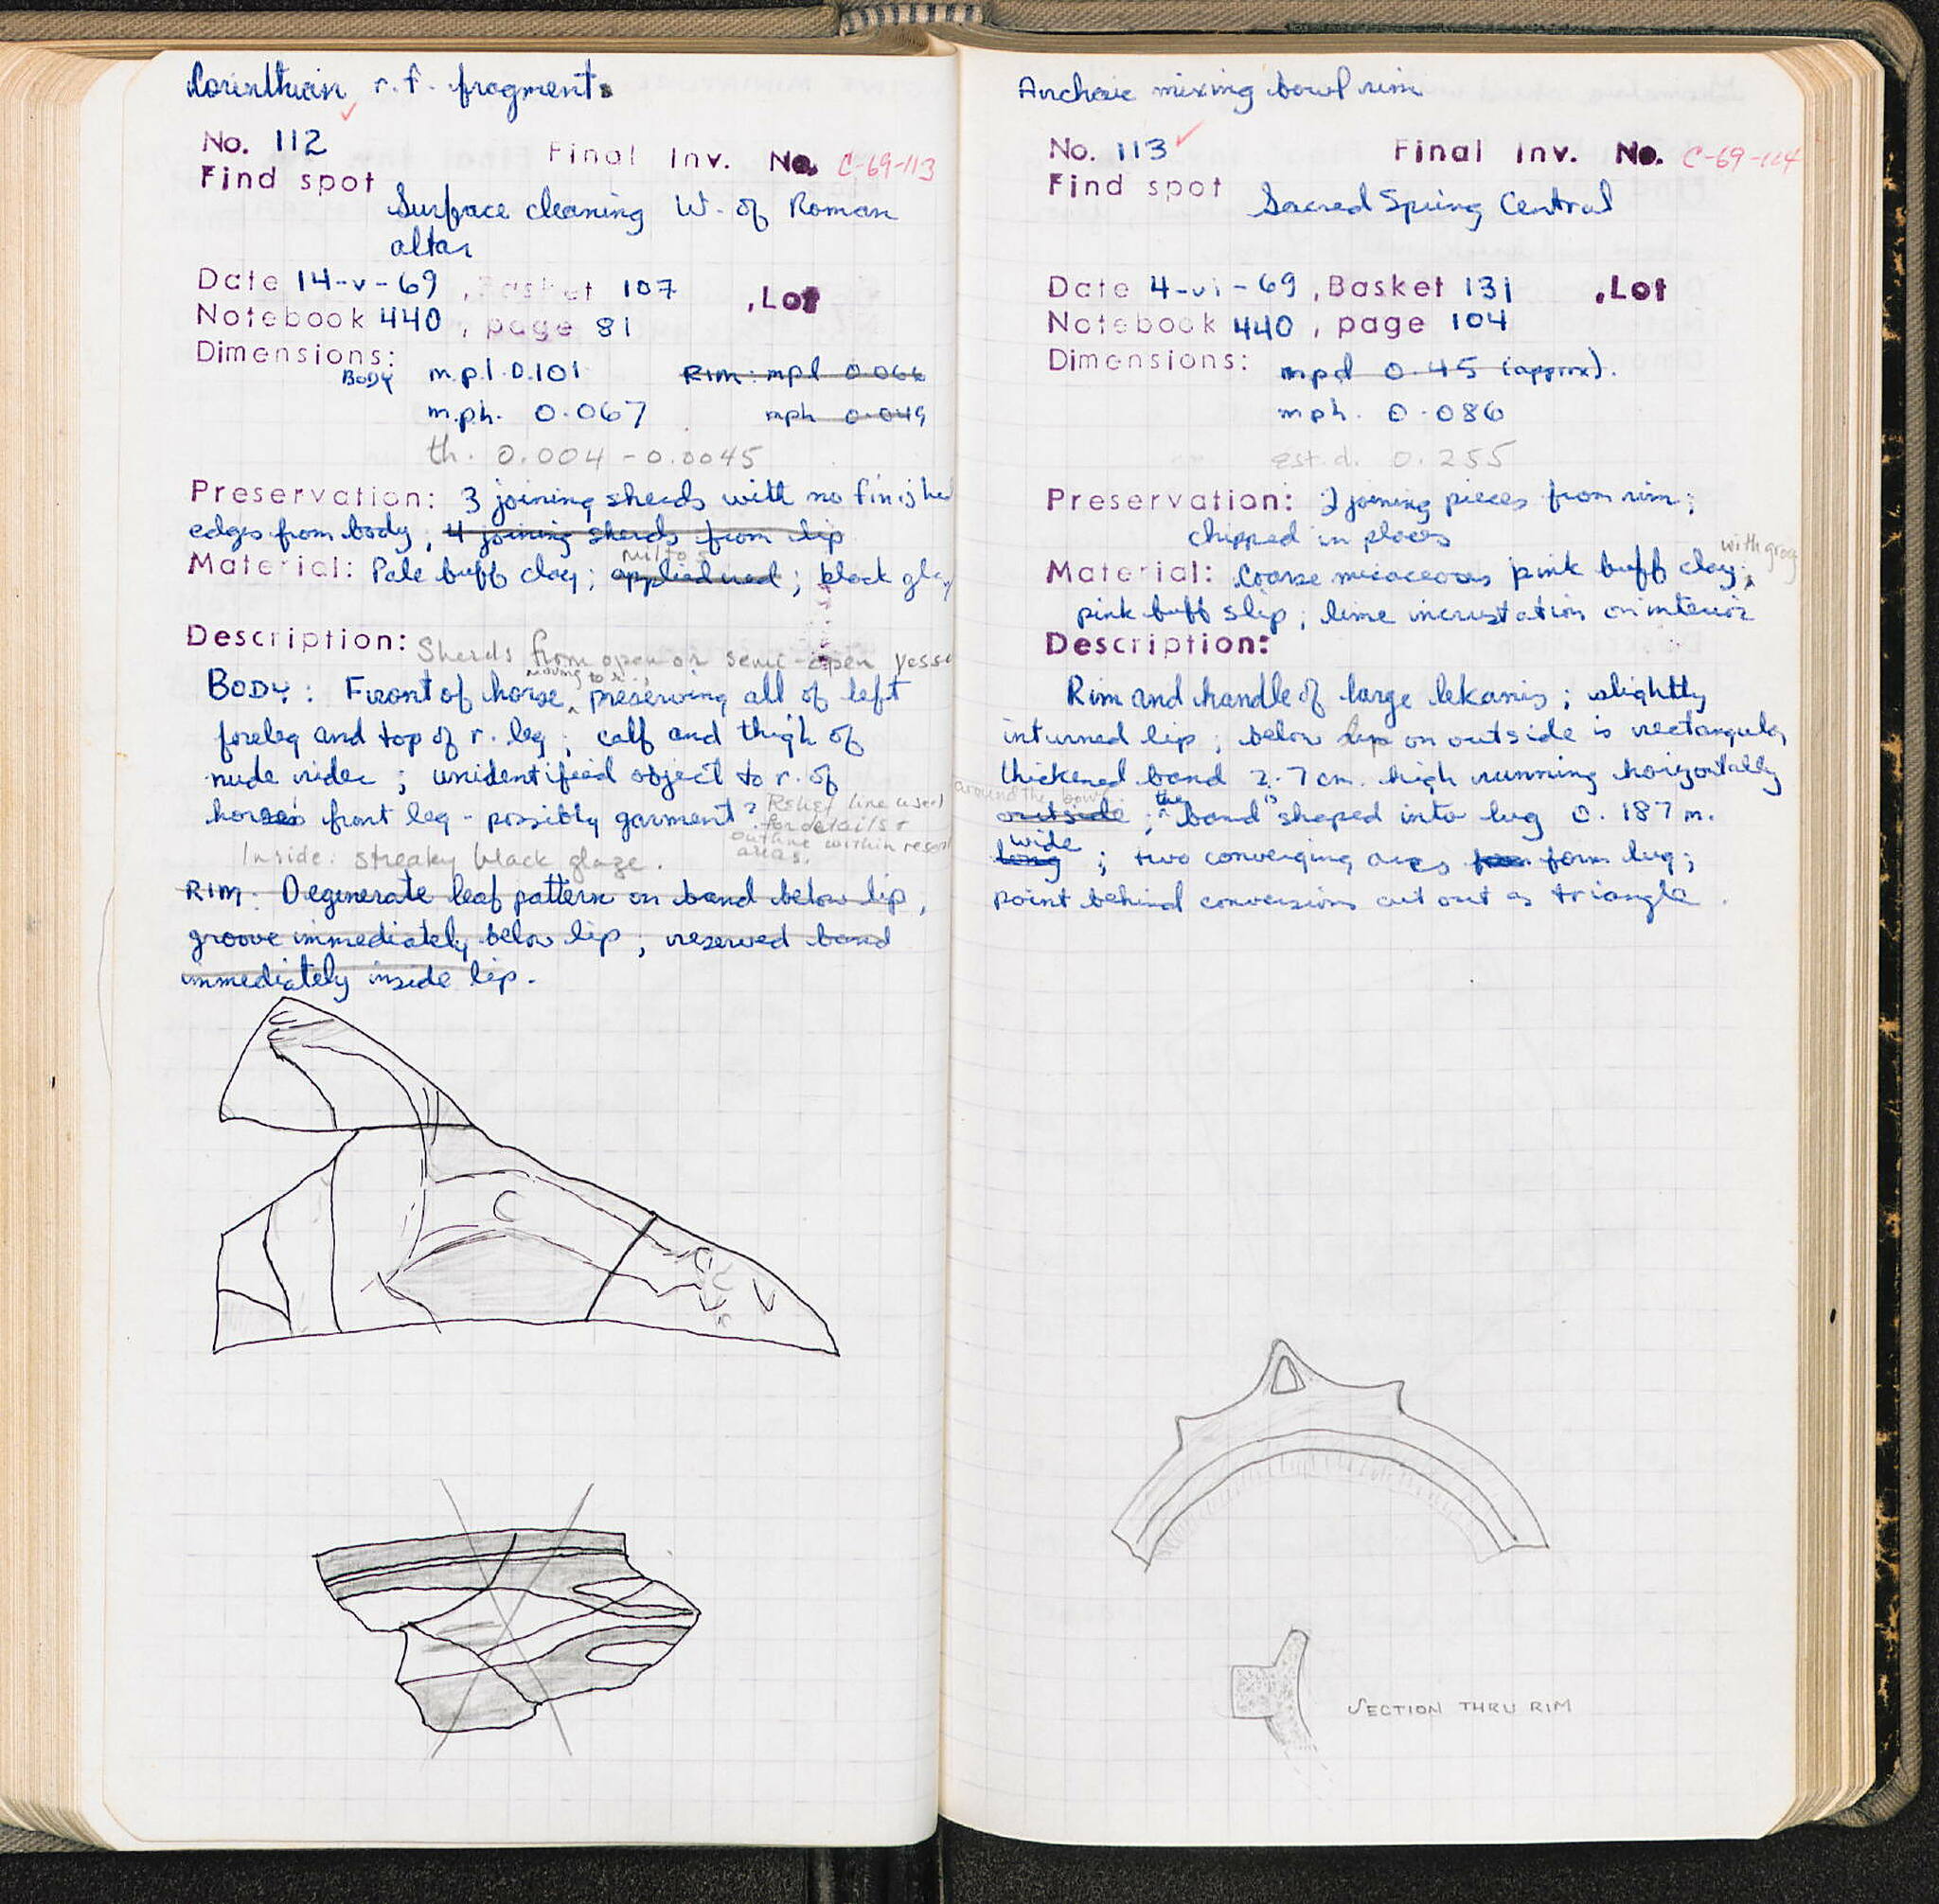 Corinthian r.f. fragments
No. 112 Final Inv. No. C-69-113
Find spot
Surface cleaning W. of Roman
altar
Date 14-v-69 , Basket 107 , Lot
Notebook 440 , page 81
Dimensions:
BODY m.p.l. 0.101 RIM: mpl 0.066
m.ph. 0.067 mph 0.049
th. 0.004 - 0.0045
Preservation: 3 joining sherds with no finished
edges from body; 4 joining sherds from lip
miltos
Material: Pale buff clay; applied red; black glaz
Description: Sherds from open or semi-open vesse
moving to r.,
BODY: Front of horse, preserving all of left
foreleg and top of r. leg; calf and thigh of
nude rider; unidentified object to r. of
horse's front leg - possibly garment? Relief line used
for details +
outline within reserv
areas.
Inside: streaky black glaze.
RIM: Degenerate leaf pattern on band below lip,
groove immediately below lip; reserved band
immediately inside lip.
Archaic mixing bowl rim
No. 113 Final Inv. No. C-69-114
Find spot
Sacred Spring Central
Date 4-vi-69 , Basket 131 , Lot
Notebook 440 , page 104
Dimensions: mpd 0.45 (approx).
mph. 0.086
est. d. 0.255
Preservation: 2 joining pieces from rim;
chipped in places
with grog
Material: Coarse micaceous pink buff clay;
pink buff slip; lime incrustation on interior
Description:
Rim and handle of large lekanis; slightly
inturned lip; below lip on outside is rectangular
thickened band 2.7 cm. high running horizontally
around the bowl
outside; the band is shaped into lug 0.187 m.
wide
long; two converging arcs form lug;
point behind conversions cut out as triangle.
SECTION THRU RIM